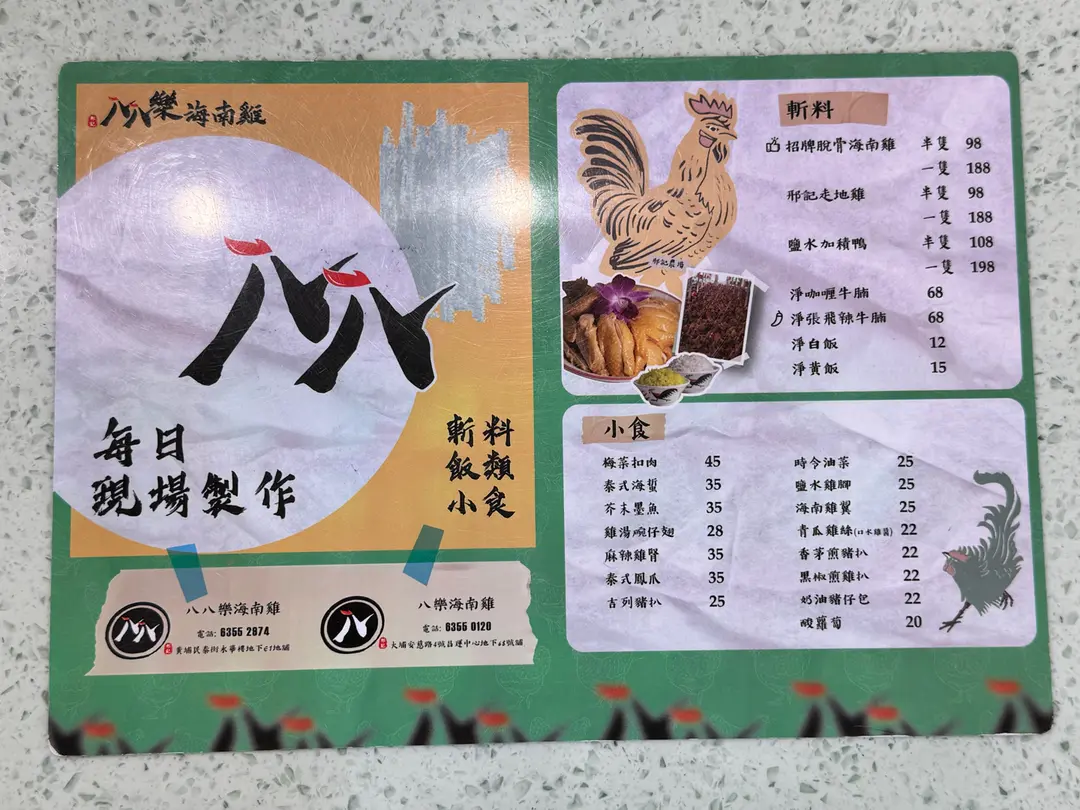 八八樂海南雞
每日
現場製作
斬料
飯類
小食
八八樂海南雞
電話: 6355 2874
八樂海南雞
電話: 6355 0120
斬料
招牌脫骨海南雞 半隻 98
一隻 188
邢記走地雞 半隻 98
一隻 188
鹽水加積鴨 半隻 108
一隻 198
淨咖喱牛腩 68
淨張飛辣牛腩 68
淨白飯 12
淨黃飯 15
邢記農場
小食
梅菜扣肉 45
泰式海蜇 35
芥末墨魚 35
雞湯碗仔翅 28
麻辣雞腎 35
泰式鳳爪 35
吉列豬扒 25
時令油菜 25
鹽水雞腳 25
海南雞翼 25
青瓜雞絲(口水雞醬) 22
香茅煎豬扒 22
黑椒煎雞扒 22
奶油豬仔包 22
酸蘿蔔 20